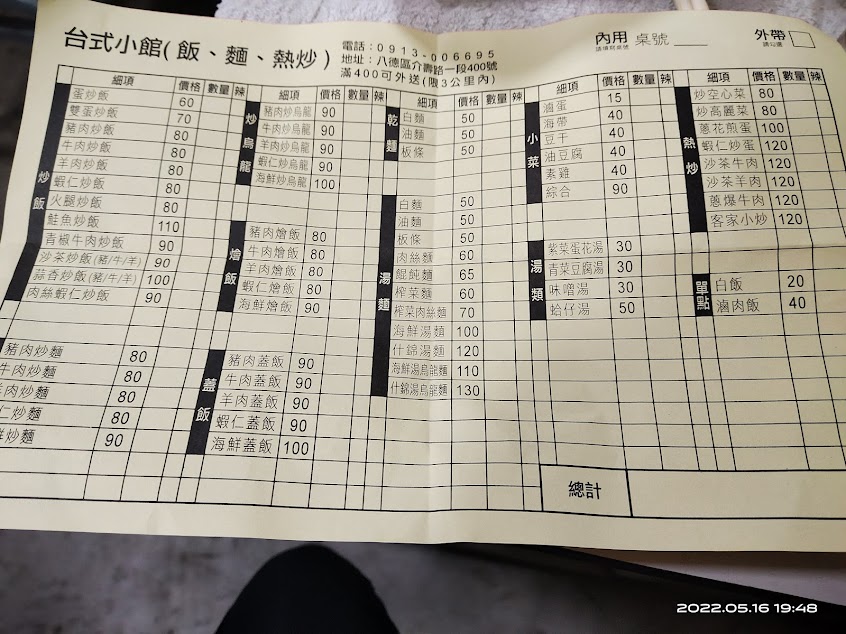 台式小館(飯、麵、熱炒)
電話：0913-006695
地址：八德區介壽路一段400號
滿400可外送(限3公里內)
內用 桌號
請填寫桌號
外帶
請勾選
細項 價格 數量 辣
炒飯
蛋炒飯 60
雙蛋炒飯 70
豬肉炒飯 80
牛肉炒飯 80
羊肉炒飯 80
蝦仁炒飯 80
火腿炒飯 80
鮭魚炒飯 110
青椒牛肉炒飯 90
沙茶炒飯(豬/牛/羊) 90
蒜香炒飯(豬/牛/羊) 100
肉絲蝦仁炒飯 90
豬肉炒麵 80
牛肉炒麵 80
羊肉炒麵 80
仁炒麵 80
鮮炒麵 90
細項 價格 數量 辣
炒烏龍
豬肉炒烏龍 90
牛肉炒烏龍 90
羊肉炒烏龍 90
蝦仁炒烏龍 90
海鮮炒烏龍 100
燴飯
豬肉燴飯 80
牛肉燴飯 80
羊肉燴飯 80
蝦仁燴飯 80
海鮮燴飯 90
蓋飯
豬肉蓋飯 90
牛肉蓋飯 90
羊肉蓋飯 90
蝦仁蓋飯 90
海鮮蓋飯 100
細項 價格 數量 辣
乾麵
白麵 50
油麵 50
板條 50
湯麵
白麵 50
油麵 50
板條 50
肉絲麵 60
餛飩麵 65
榨菜麵 60
榨菜肉絲麵 70
海鮮湯麵 100
什錦湯麵 120
海鮮湯烏龍麵 110
什錦湯烏龍麵 130
細項 價格 數量 辣
小菜
滷蛋 15
海帶 40
豆干 40
油豆腐 40
素雞 40
綜合 90
湯類
紫菜蛋花湯 30
青菜豆腐湯 30
味噌湯 30
蛤仔湯 50
細項 價格 數量 辣
熱炒
炒空心菜 80
炒高麗菜 80
蔥花煎蛋 100
蝦仁炒蛋 120
沙茶牛肉 120
沙茶羊肉 120
蔥爆牛肉 120
客家小炒 120
單點
白飯 20
滷肉飯 40
總計
2022.05.16 19:48